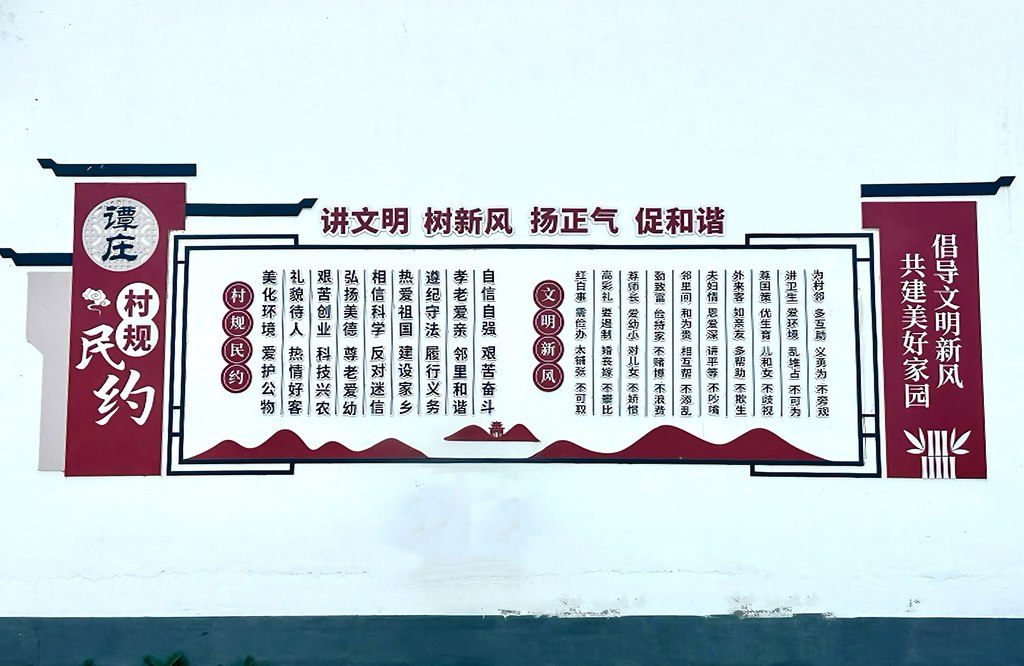 谭庄
村规
民约
讲文明 树新风 扬正气 促和谐
村规民约
美化环境 爱护公物
礼貌待人 热情好客
艰苦创业 科技兴农
弘扬美德 尊老爱幼
相信科学 反对迷信
热爱祖国 建设家乡
遵纪守法 履行义务
孝老爱亲 邻里和谐
自信自强 艰苦奋斗
文明新风
红百事 需俭办 太铺张 不可取
高彩礼 要遏制 婚丧嫁 不攀比
尊师长 爱幼小 对儿女 不娇惯
勤致富 俭持家 不赌博 不浪费
邻里间 和为贵 相互帮 不添乱
夫妇情 恩爱深 讲平等 不吵嘴
外来客 如亲友 多帮助 不欺生
尊国策 优生育 儿和女 不歧视
讲卫生 爱环境 乱堆占 不可为
为村邻 多互助 义勇为 不旁观
倡导文明新风
共建美好家园